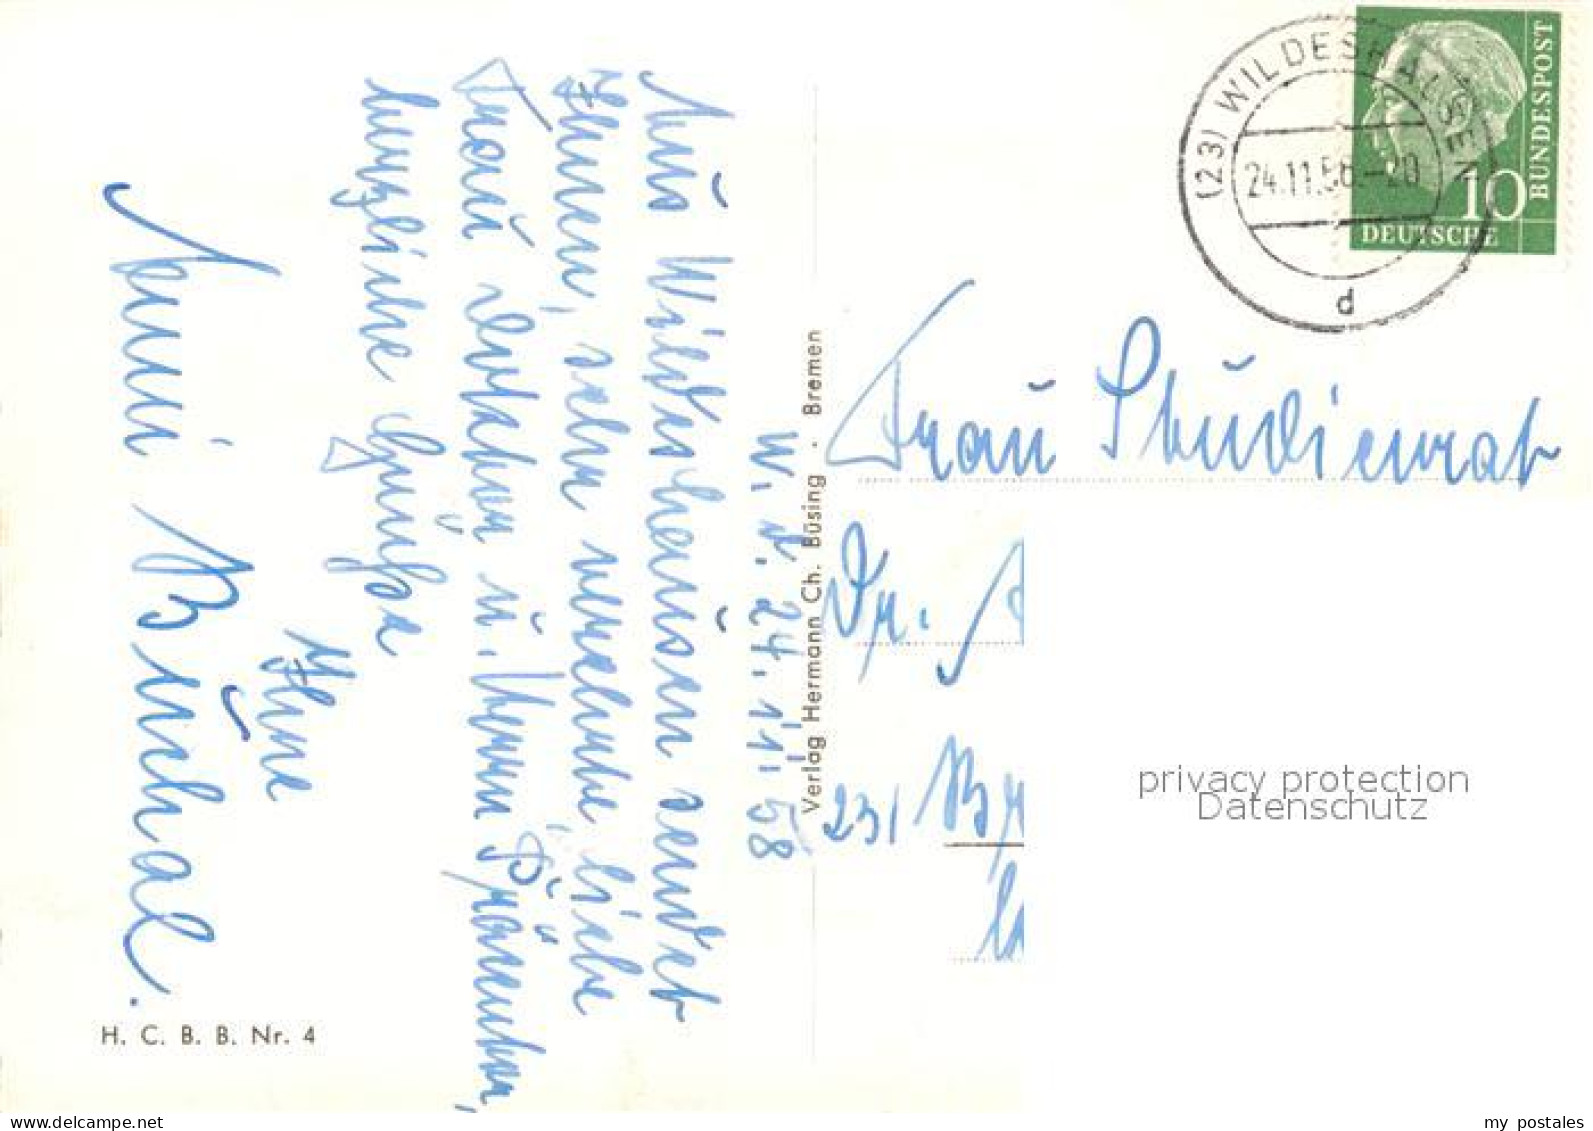 W. d. 24. 11. 58
Aus Wildeshausen sendet
Ihnen, sehr verehrte, liebe
Frau Doktor u. Herrn
herzliche Grüße
Ihre
Anni Buchal.
H. C. B. B. Nr. 4
Verlag Hermann Ch. Büsing . Bremen
(23) WILDESHAUSEN
24.11.58.-20
d
10
DEUTSCHE
BUNDESPOST
Frau Studienrat
Dr.
23/
privacy protection
Datenschutz
oldthing.de
my postales